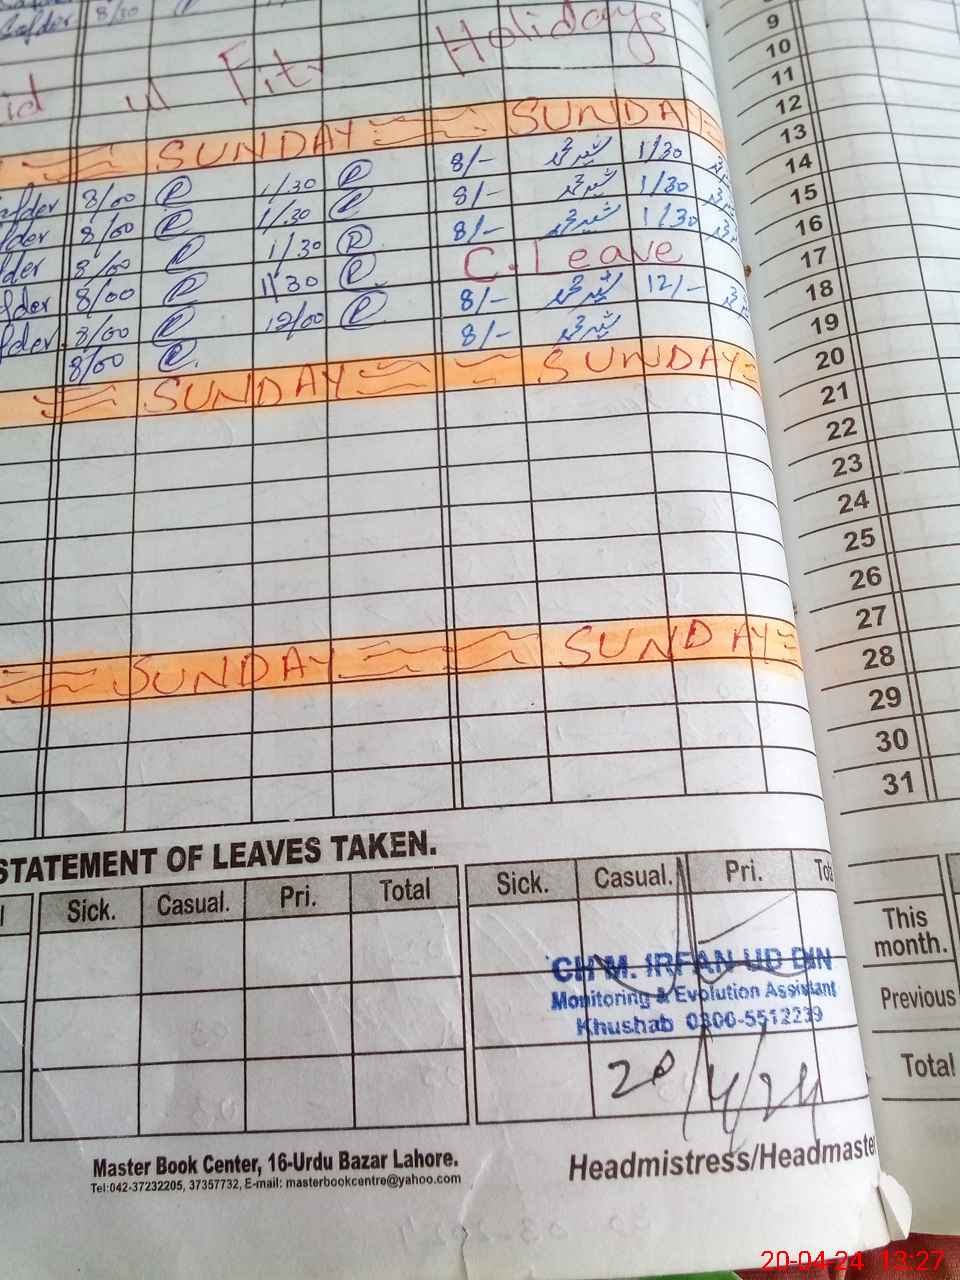 8/30
Eid ul Fitr Holidays
SUNDAY SUNDAY
8/00 1/30 8/- شیر محمد 1/30
8/00 1/30 8/- شیر محمد 1/30
8/00 1/30 8/- شیر محمد 1/30
8/00 1/30 C. Leave
8/00 12/00 8/- شیر محمد 12/-
8/00 8/- شیر محمد
SUNDAY SUNDAY
SUNDAY SUNDAY
STATEMENT OF LEAVES TAKEN.
Sick. Casual. Pri. Total Sick. Casual. Pri.
CH M. IRFAN UD DIN
Monitoring & Evolution Assistant
Khushab 0300-5512239
20/4/24
Master Book Center, 16-Urdu Bazar Lahore.
Tel:042-37232205, 37357732, E-mail: masterbookcentre@yahoo.com
Headmistress/Headmaste
9
10
11
12
13
14
15
16
17
18
19
20
21
22
23
24
25
26
27
28
29
30
31
This
month.
Previous
Total
20-04-24 13:27